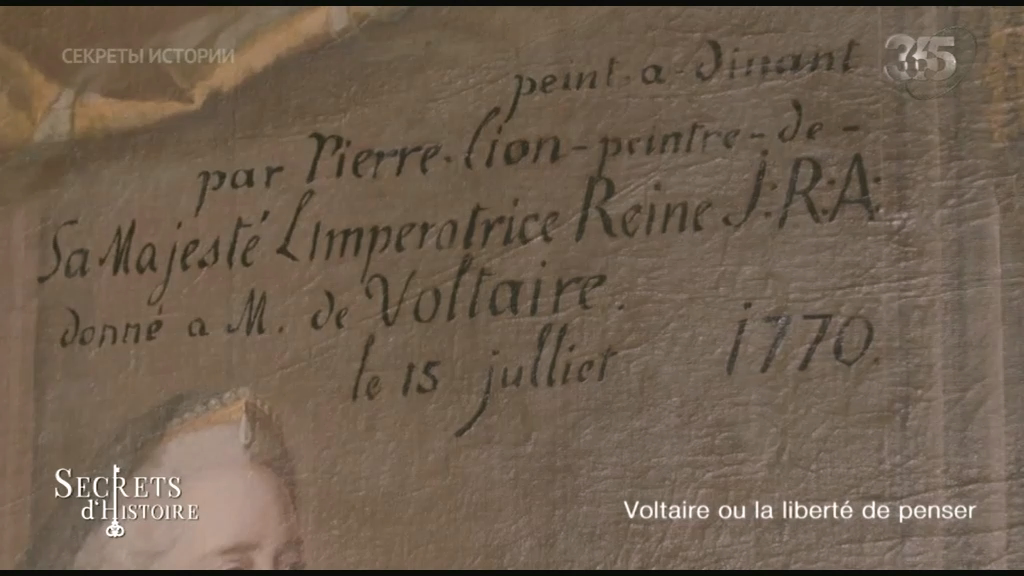 СЕКРЕТЫ ИСТОРИИ
365
peint a dinant
par Pierre. lion - peintre - de -
Sa Majesté L'imperatrice Reine J:R:A:
donné a M. de Voltaire.
le 15 julliet 1770.
SECRETS
d'HISTOIRE
Voltaire ou la liberté de penser